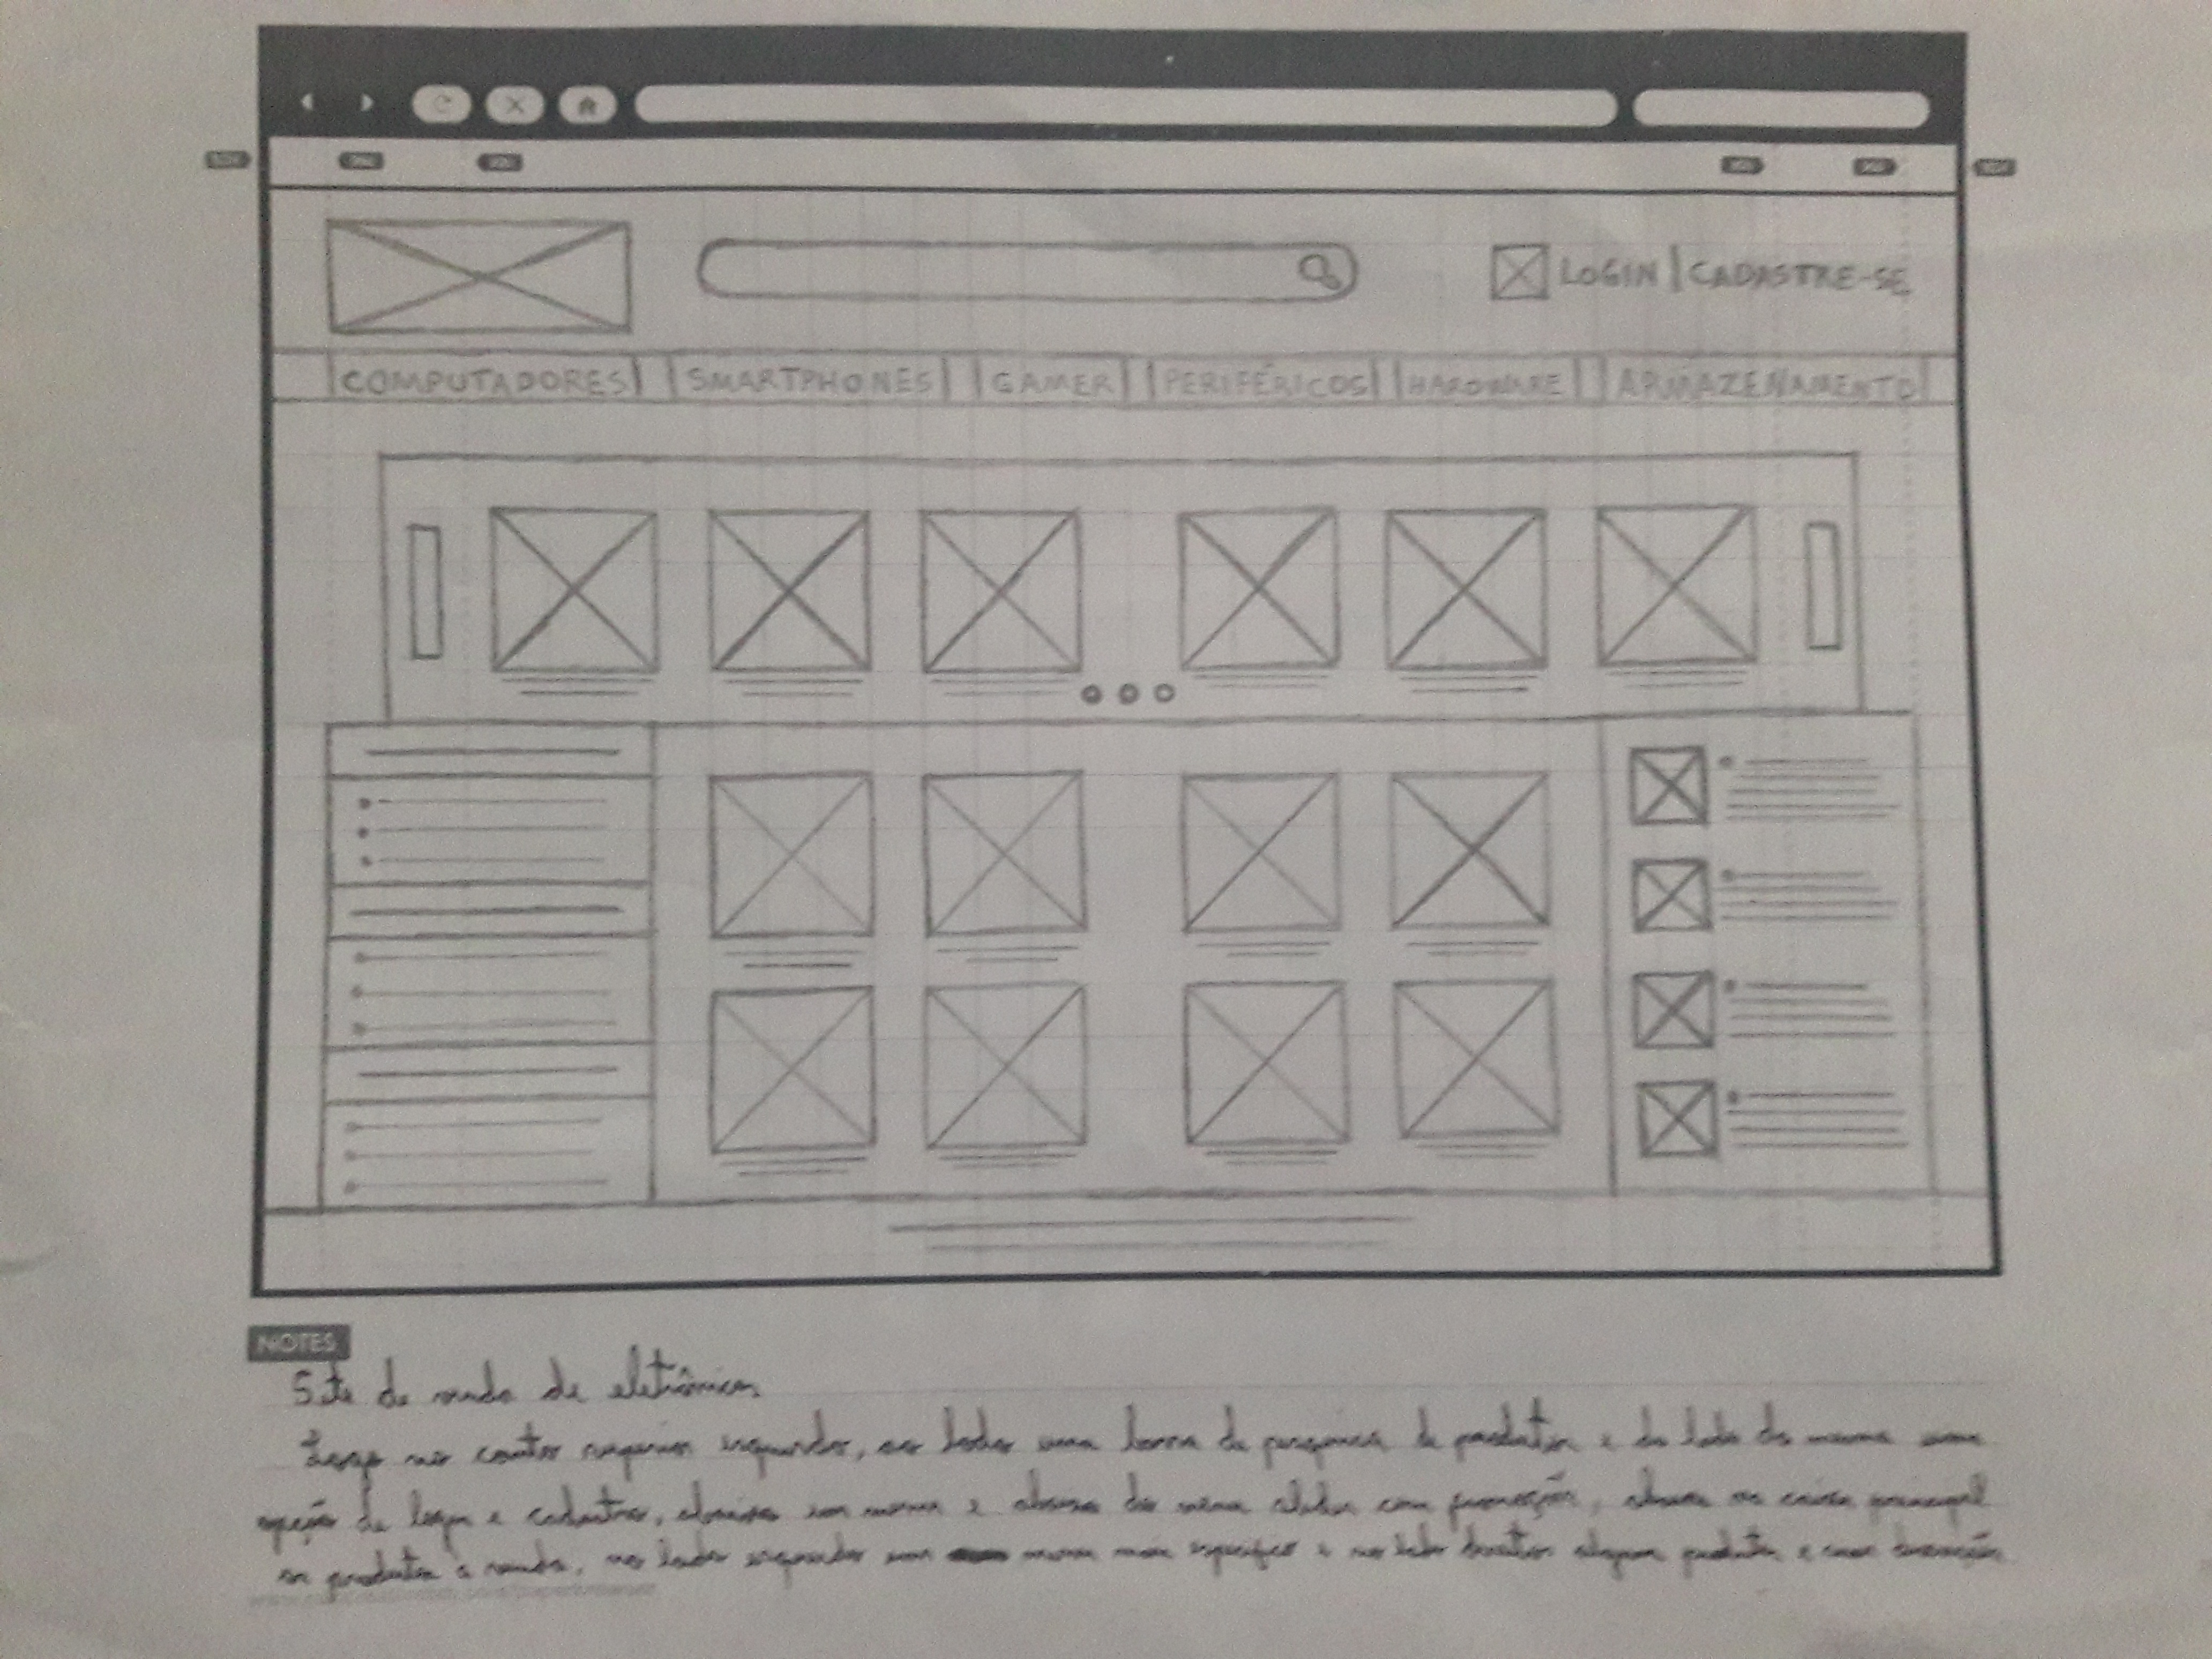 LOGIN | CADASTRE-SE
COMPUTADORES | SMARTPHONES | GAMER | PERIFÉRICOS | HARDWARE | ARMAZENNMENTO
NOTES
Site de venda de eletrônicos
Logo no canto superior esquerdo, ao lado uma barra de pesquisa de produtos e do lado da mesma uma
opção de login e cadastro, abaixo um menu e abaixo do menu slider com promoções, abaixo na caixa principal
os produtos à venda, no lado esquerdo um menu mais específico e no lado direito alguns produtos e suas